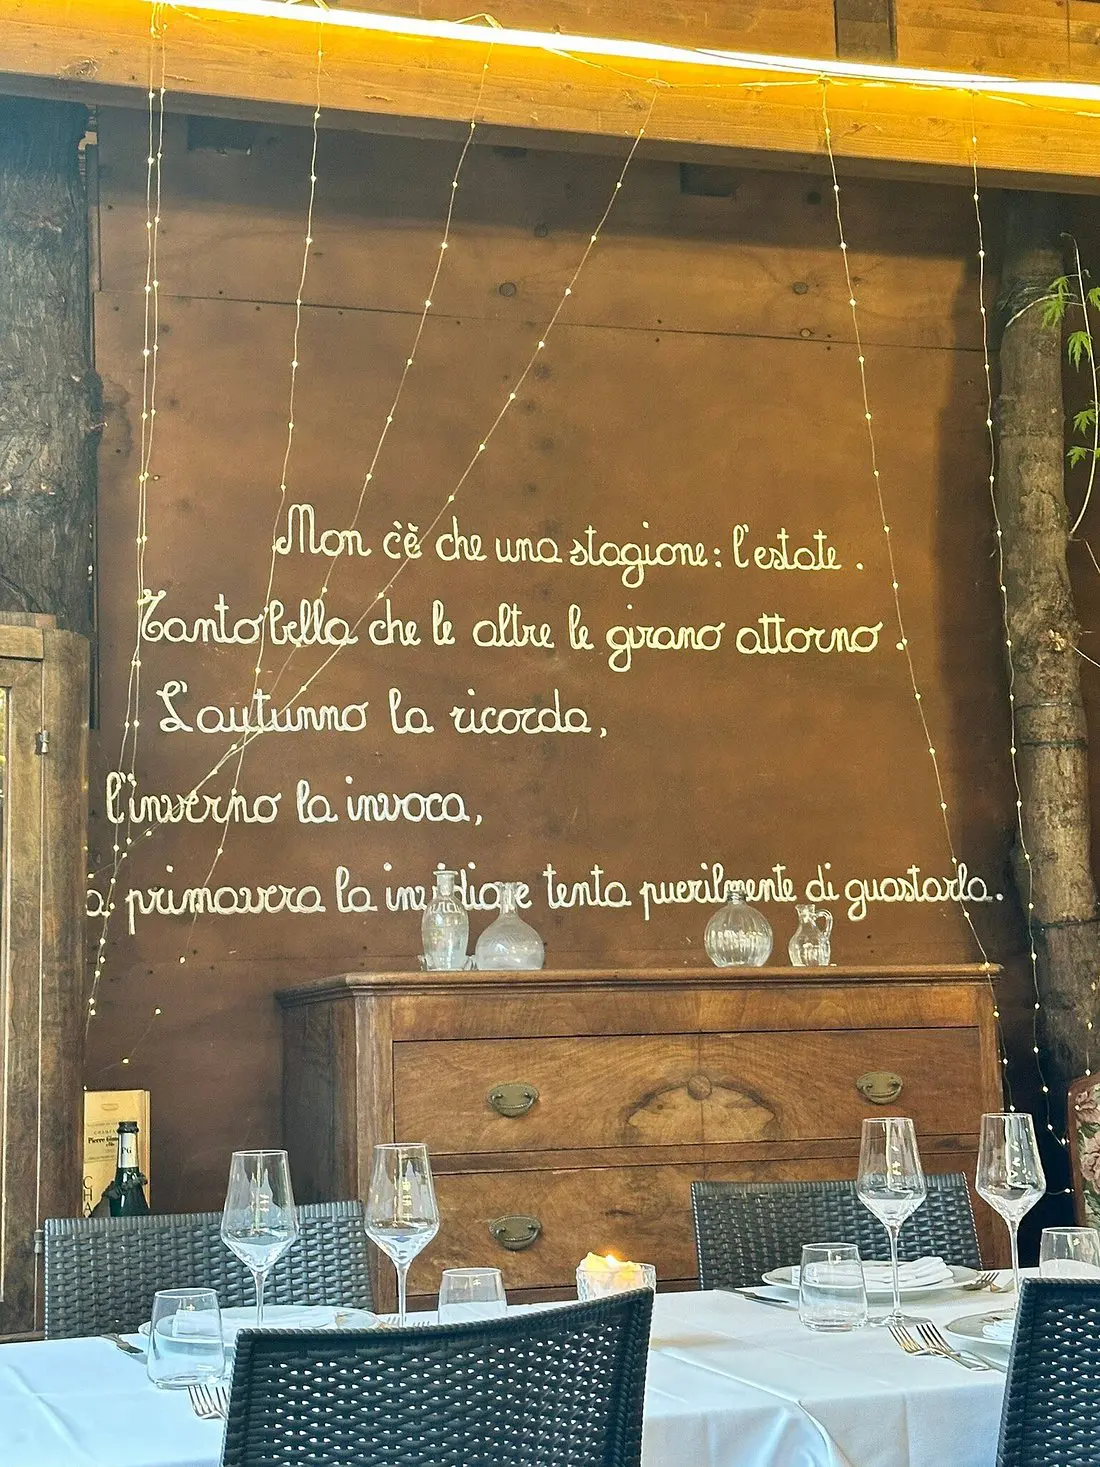 Non c'è che una stagione: l'estate.
Tanto bella che le altre le girano attorno.
L'autunno la ricorda,
l'inverno la invoca,
a primavera la invidia e tenta puerilmente di guastarla.
CHAMPAGNE
Pierre Gimo
PG
CHA